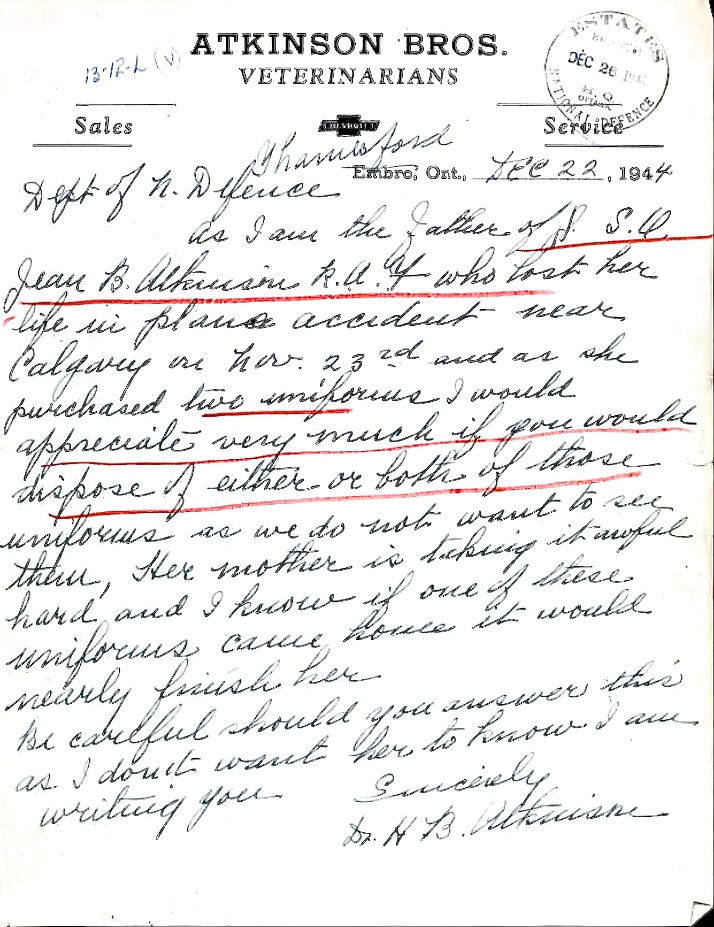 ATKINSON BROS.
VETERINARIANS
13-12-L (V)
ESTATES
BRANCH
DEC 26 194
H.Q.
OTTAWA
NATIONAL DEFENCE
Sales
CHEVROLET
Service
Thamesford
Embro, Ont., DEC 22, 1944
Dept of N. Defence
as I am the father of N. S. Q
Jean B. Atkinson R.A.F who lost her
life in plane accident near
Calgary on Nov. 23rd and as she
purchased two uniforms I would
appreciate very much if you would
dispose of either or both of those
uniforms as we do not want to see
them, Her mother is taking it awful
hard and I know if one of these
uniforms came home it would
nearly finish her
Be careful should you answer this
as I don't want her to know I am
writing you
Sincerely
Dr. H B. Atkinson